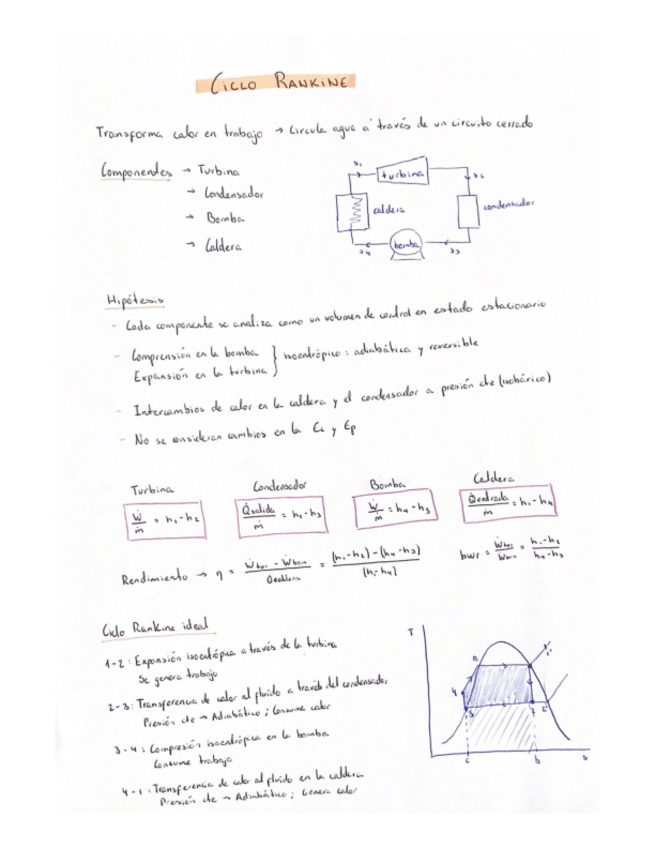 CICLO RANKINE
Transforma calor en trabajo → Circula agua a través de un circuito cerrado
Componentes → Turbina
→ Condensador
→ Bomba
→ Caldera
turbina
caldera
condensador
bomba
Hipótesis
- Cada componente se analiza como un volumen de control en estado estacionario
- Comprensión en la bomba
Expansión en la turbina } isoentrópico: adiabática y reversible
- Intercambios de calor en la caldera y el condensador a presión cte (isobárico)
- No se consideran cambios en la Ec y Ep
Turbina Condensador Bomba Caldera
Ẇ/ṁ = h₁-h₂
Q̇salida/ṁ = h₂-h₃
Ẇ/ṁ = h₄-h₃
Q̇entrada/ṁ = h₁-h₄
Rendimiento → η = = (h₁-h₂)-(h₄-h₃)/(h₁-h₄)
bwr = = h₁-h₂/h₄-h₃
Ciclo Rankine ideal
1-2: Expansión isoentrópica a través de la turbina
Se genera trabajo
2-3: Transferencia de calor al fluido a través del condensador
Presión cte → Adiabático; Consume calor
3-4: Compresión isoentrópica en la bomba
Consume trabajo
4-1: Transferencia de calor al fluido en la caldera
Presión cte → Adiabático; Genera calor
T
a
1'
4
3
2
2'
c
b
s